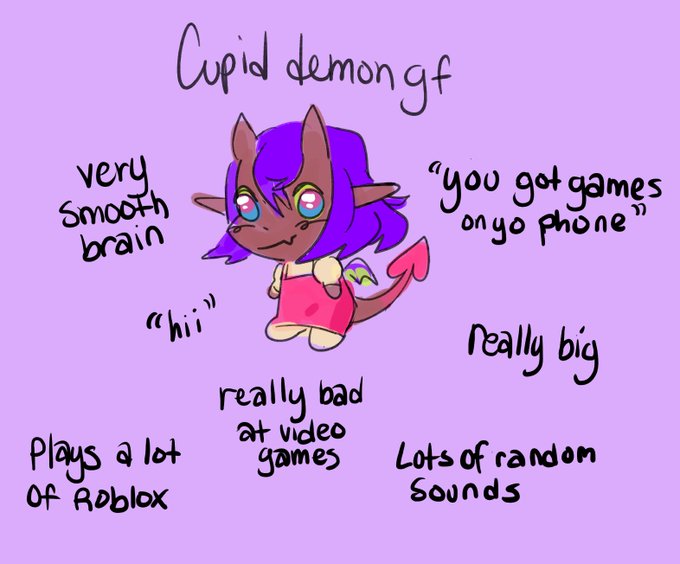 Cupid demon gf
very
smooth
brain
"you got games
on yo phone"
"hii"
really big
really bad
at video
games
Plays a lot
of Roblox
Lots of random
sounds